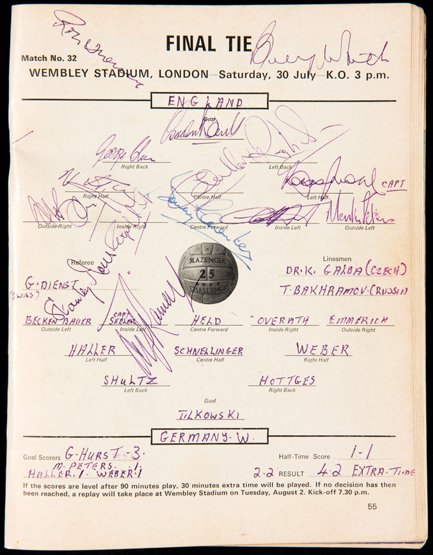 FINAL TIE
Match No. 32
WEMBLEY STADIUM, LONDON — Saturday, 30 July—K.O. 3 p.m.
ENGLAND
Goal
Right Back Left Back
Right Half Centre Half Left Half CAPT
Outside Right Inside Right Centre Forward Inside Left Outside Left
Referee Linesmen
G. DIENST (SWISS) DR. K. GALBA (CZECH)
T. BAKHRAMOV. (RUSSIA)
SLAZENGER
25
CHALLENGE
BECKENBAUER CAPT SEELER HELD OVERATH EMMERICH
Outside Left Inside Left Centre Forward Inside Right Outside Right
HALLER SCHNELLINGER WEBER
Left Half Centre Half Right Half
SHULTZ HOTTGES
Left Back Right Back
Goal
TILKOWSKI
GERMANY-W.
Goal Scorers G. HURST-3- Half-Time Score 1-1
M. PETERS 1
HALLER. 1 - WEBER. 1 2-2 RESULT 4-2 EXTRA-TIME
If the scores are level after 90 minutes play, 30 minutes extra time will be played. If no decision has then
been reached, a replay will take place at Wembley Stadium on Tuesday, August 2. Kick-off 7.30 p.m.
55